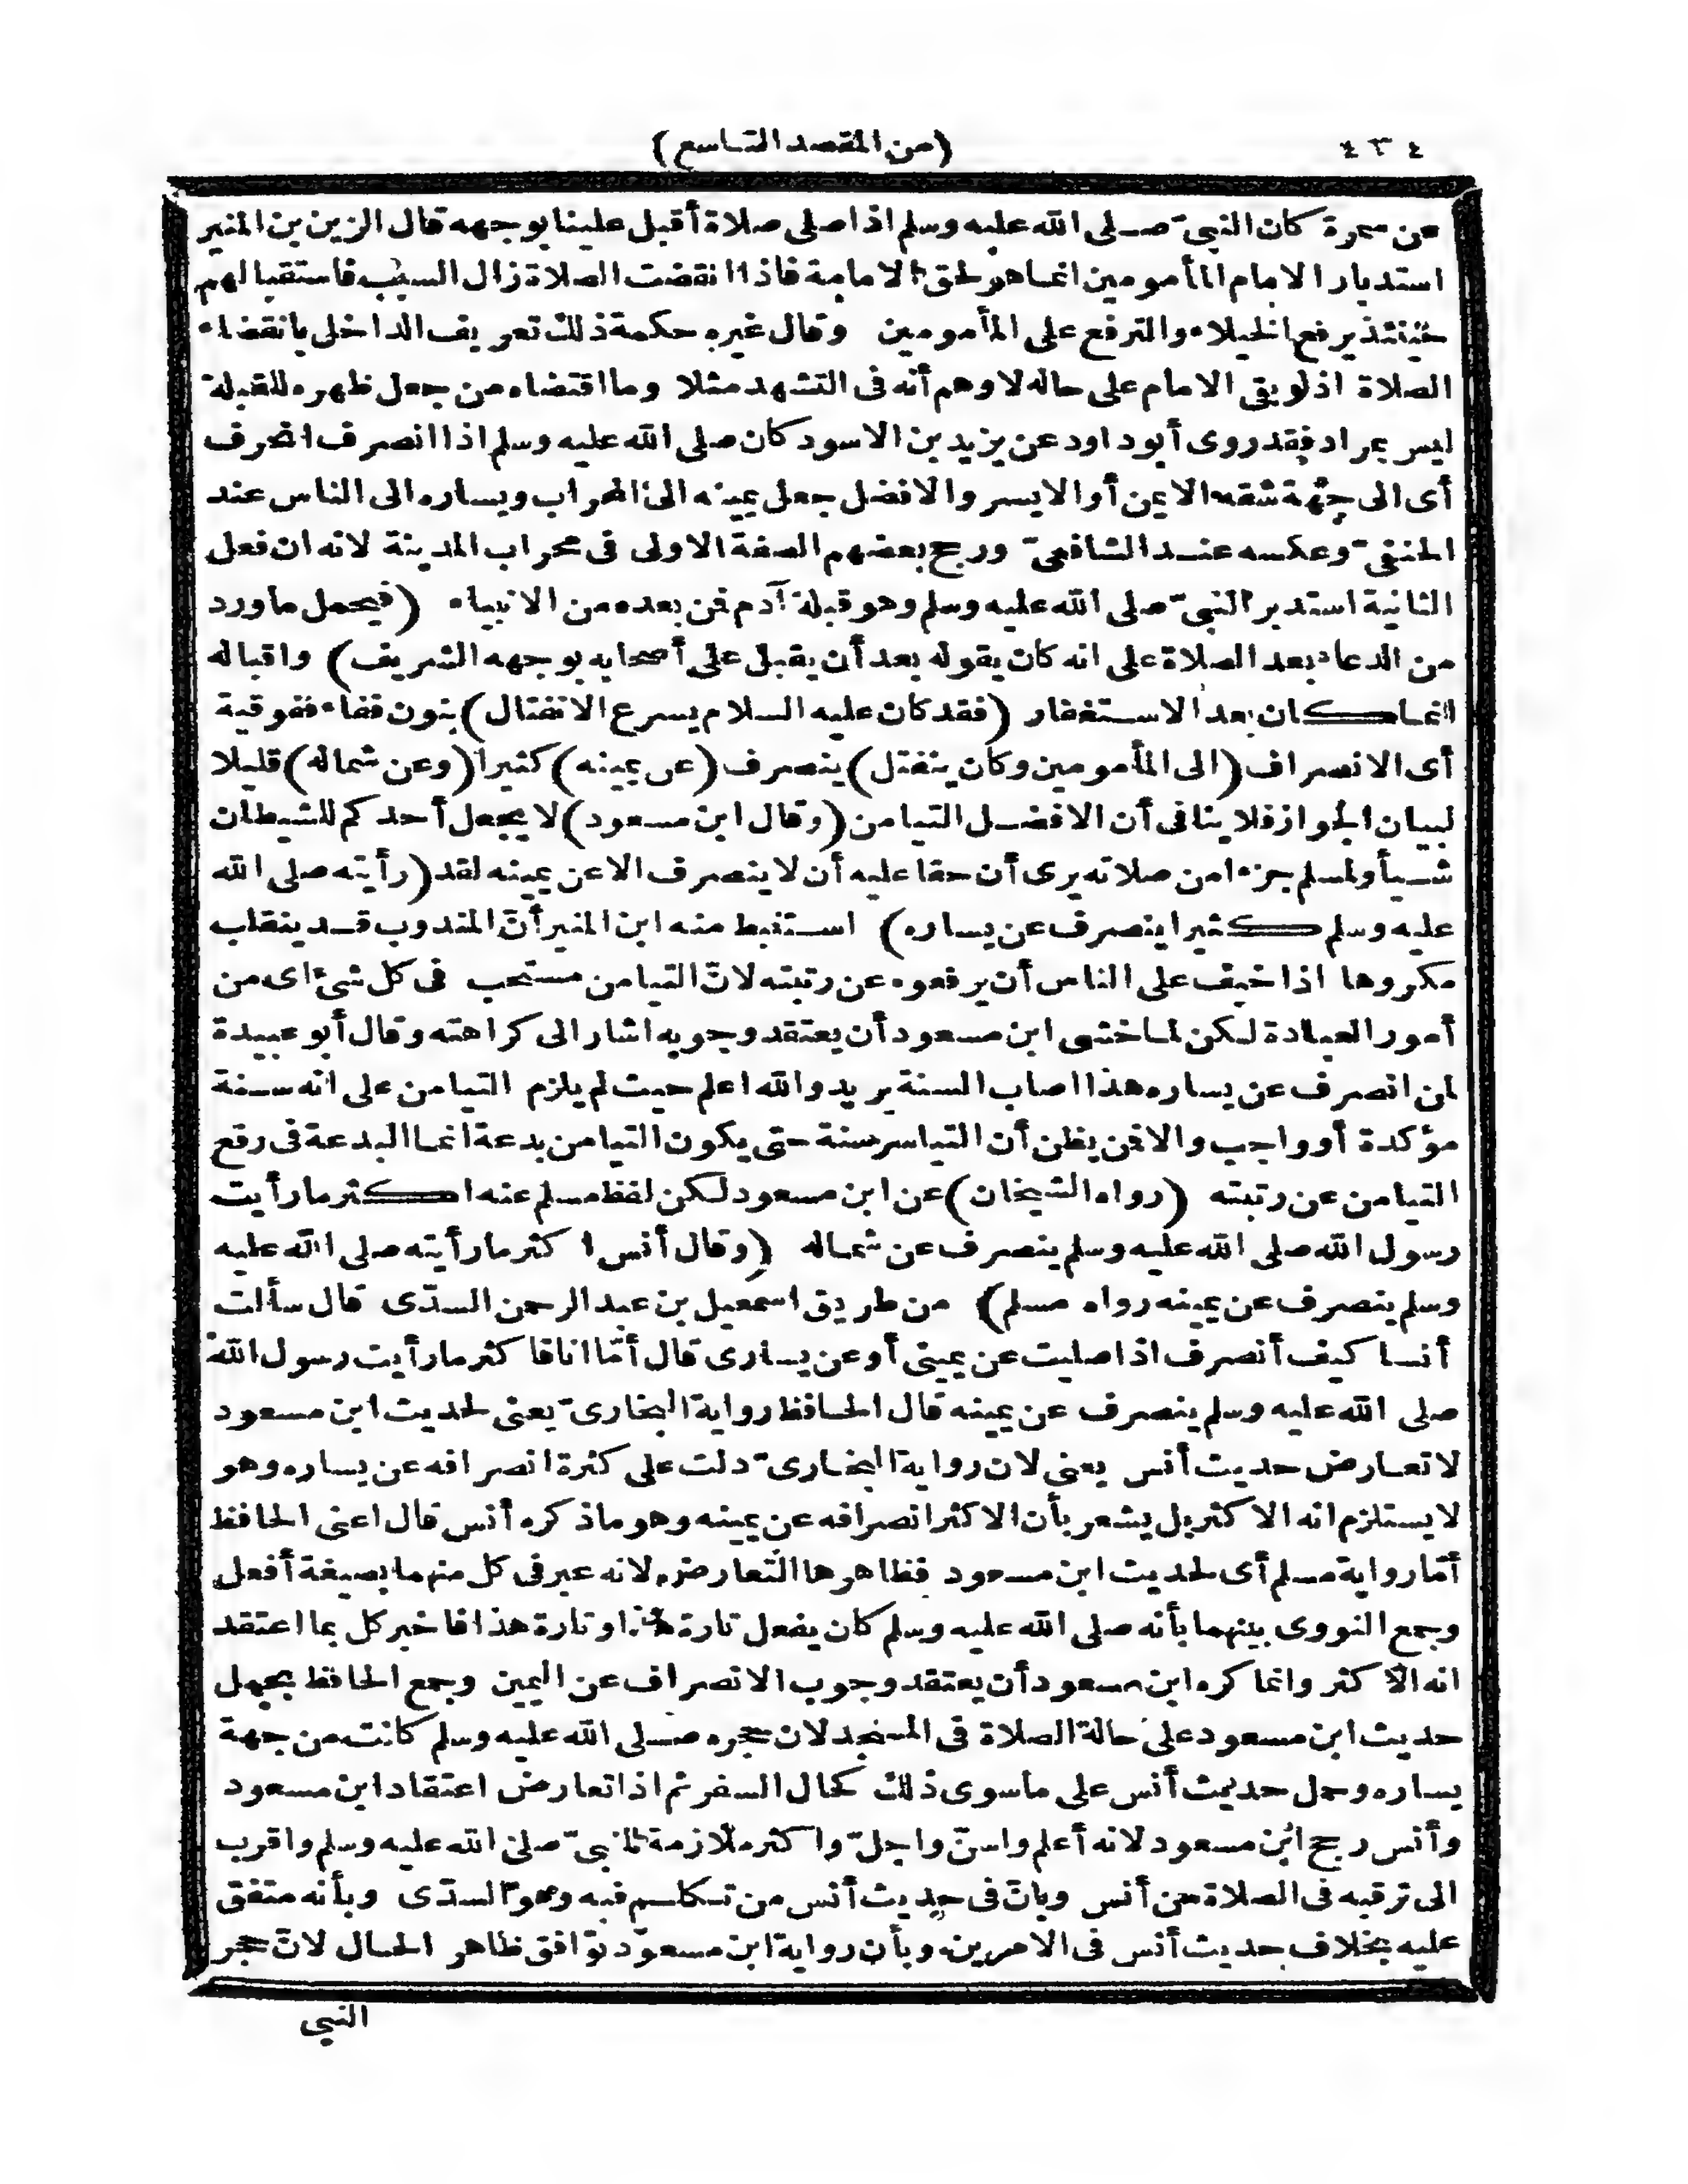 ٤٣٤
(من المقصد التاسع)
عن سمرة كان النبيّ صلى الله عليه وسلم اذا صلى صلاة أقبل علينا بوجهه قال الزين بن المنير
استدبار الامام المأمومين انما هو لحق الامامة فاذا انقضت الصلاة زال السبب فاستقبالهم
حينئذ يرفع الخيلاء والترفع على المأمومين وقال غيره حكمة ذلك تعريف الداخل بانقضاء
الصلاة اذ لو بقى الامام على حاله لا وهم أنه فى التشهد مثلا وما اقتضاه من جعل ظهره للقبلة
ليس بمراد فقد روى أبو داود عن يزيد بن الاسود كان صلى الله عليه وسلم اذا انصرف انحرف
أى الى جهة شقه الايمن أو الايسر والافضل جعل يمينه الى المحراب ويساره الى الناس عند
الحنفىّ وعكسه عند الشافعىّ ورجح بعضهم الصفة الاولى فى محراب المدينة لانه ان فعل
الثانية استدبر النبىّ صلى الله عليه وسلم وهو قبلة آدم فمن بعده من الانبياء (فيحمل ما ورد
من الدعاء بعد الصلاة على انه كان يقوله بعد أن يقبل على أصحابه بوجهه الشريف) واقباله
انما كان بعد الاستغفار (فقد كان عليه السلام يسرع الانفتال) بنون ففاء ففوقية
أى الانصراف (الى المأمومين وكان ينفتل) ينصرف (عن يمينه) كثيرا (وعن شماله) قليلا
لبيان الجواز فلا ينافى أن الافضل التيامن (وقال ابن مسعود) لا يجعل أحدكم للشيطان
شيأ ولمسلم جزءا من صلاته يرى أن حقا عليه أن لا ينصرف الا عن يمينه لقد (رأيته صلى الله
عليه وسلم كثيرا ينصرف عن يساره) استنبط منه ابن المنير أنّ المندوب قد ينقلب
مكروها اذا خيف على الناس أن يرفعوه عن رتبته لانّ التيامن مستحب فى كل شئ اى من
أمور العبادة لكن لما خشى ابن مسعود أن يعتقد وجوبه اشار الى كراهته وقال أبو عبيدة
لمن انصرف عن يساره هذا اصاب السنة يريد والله اعلم حيث لم يلزم التيامن على انه سنة
مؤكدة أو واجب والا فمن يظن أن التياسر سنة حتى يكون التيامن بدعة انما البدعة فى رفع
التيامن عن رتبته (رواه الشيخان) عن ابن مسعود لكن لفظ مسلم عنه اكثر ما رأيت
رسول الله صلى الله عليه وسلم ينصرف عن شماله (وقال أنس اكثر ما رأيته صلى الله عليه
وسلم ينصرف عن يمينه رواه مسلم) من طريق اسمعيل بن عبد الرحمن السدّى قال سألت
أنسا كيف أنصرف اذا صليت عن يمينى أو عن يسارى قال أمّا انا فاكثر ما رأيت رسول الله
صلى الله عليه وسلم ينصرف عن يمينه قال الحافظ رواية البخارىّ يعنى لحديث ابن مسعود
لا تعارض حديث أنس يعنى لان رواية البخارىّ دلت على كثرة انصرافه عن يساره وهو
لا يستلزم انه الاكثر بل يشعر بأن الاكثر انصرافه عن يمينه وهو ما ذكره أنس قال اعنى الحافظ
أمّا رواية مسلم أى لحديث ابن مسعود فظاهرها التعارض لانه عبر فى كل منهما بصيغة أفعل
وجمع النووى بينهما بأنه صلى الله عليه وسلم كان يفعل تارة هذا وتارة هذا فاخبر كل بما اعتقد
انه الاكثر وانما كره ابن مسعود أن يعتقد وجوب الانصراف عن اليمين وجمع الحافظ بحمل
حديث ابن مسعود على حالة الصلاة فى المسجد لان حجره صلى الله عليه وسلم كانت من جهة
يساره وحمل حديث أنس على ما سوى ذلك كحال السفر ثم اذا تعارض اعتقاد ابن مسعود
وأنس رجح ابن مسعود لانه أعلم واسنّ واجلّ واكثر ملازمة للنبىّ صلى الله عليه وسلم واقرب
الى ترقبه فى الصلاة من أنس وبانّ فى حديث أنس من تكلم فيه وهو السدّى وبأنه متفق
عليه بخلاف حديث أنس فى الامرين وبأن رواية ابن مسعود توافق ظاهر الحال لانّ حجر
النبى